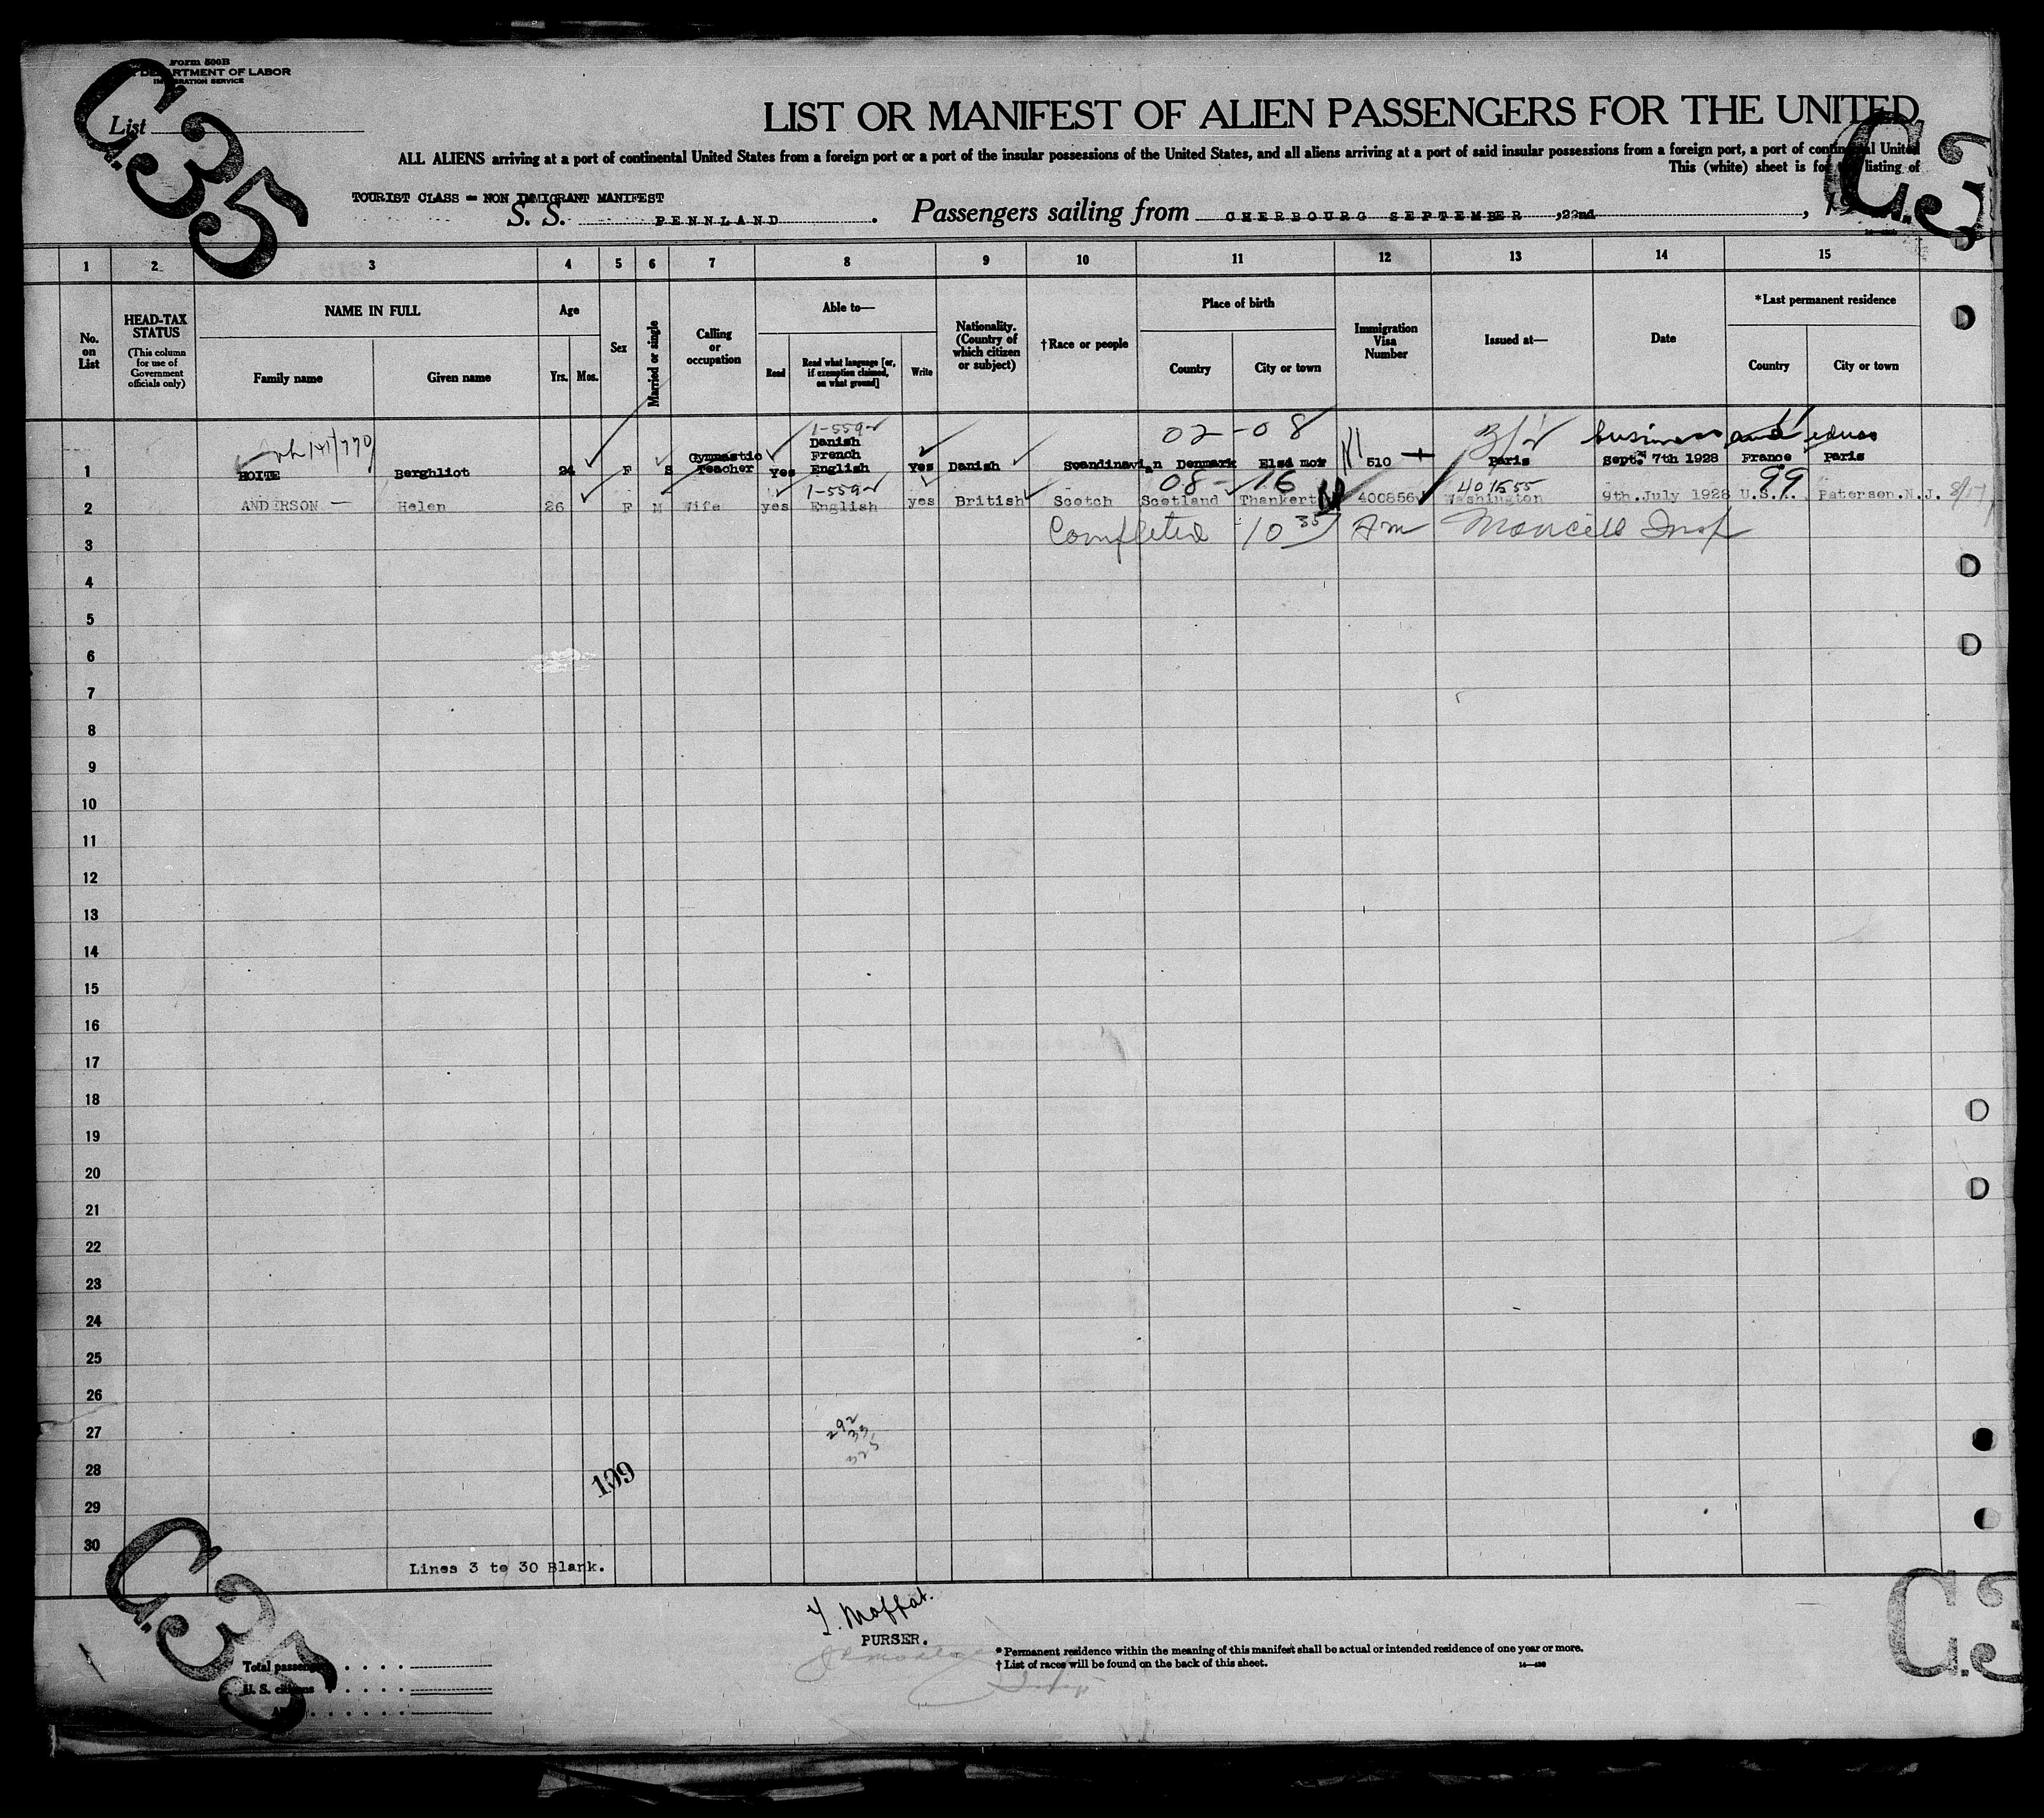 Form 500B
DEPARTMENT OF LABOR
IMMIGRATION SERVICE
C.35
List
LIST OR MANIFEST OF ALIEN PASSENGERS FOR THE UNITED
C.3
ALL ALIENS arriving at a port of continental United States from a foreign port or a port of the insular possessions of the United States, and all aliens arriving at a port of said insular possessions from a foreign port, a port of continental United
This (white) sheet is for the listing of
TOURIST CLASS - NON IMMIGRANT MANIFEST
S. S. PENNLAND. Passengers sailing from CHERBOURG SEPTEMBER ,22nd , 19
1 2 3 4 5 6 7 8 9 10 11 12 13 14 15
No. on List
HEAD-TAX STATUS
(This column for use of Government officials only)
NAME IN FULL
Family name
Given name
Age
Yrs.
Mos.
Sex
Married or single
Calling or occupation
Able to—
Read
Read what language [or, if exemption claimed, on what ground]
Write
Nationality. (Country of which citizen or subject)
†Race or people
Place of birth
Country
City or town
Immigration Visa Number
Issued at—
Date
*Last permanent residence
Country
City or town
1-559
02-08
business and educ
1 HOITE Berghliot 24 F S Gymnastic Teacher yes Danish French English Yes Danish Scandinavian Denmark Elsi mor 510 Paris Sept. 7th 1928 France Paris
1-559
08-16
401555
99
2 ANDERSON — Helen 26 F M Wife yes English yes British Scotch Scotland Thankert 400856 Washington 9th.July 1928 U.S.A. Paterson.N.J.
3 Completed 10 35 Am
4
5
6
7
8
9
10
11
12
13
14
15
16
17
18
19
20
21
22
23
24
25
26
27
28
29
30
292
33
325
109
Lines 3 to 30 Blank.
C.35
C.3
T. Moffat.
PURSER.
Total passengers
U. S. citizens
* Permanent residence within the meaning of this manifest shall be actual or intended residence of one year or more.
† List of races will be found on the back of this sheet.